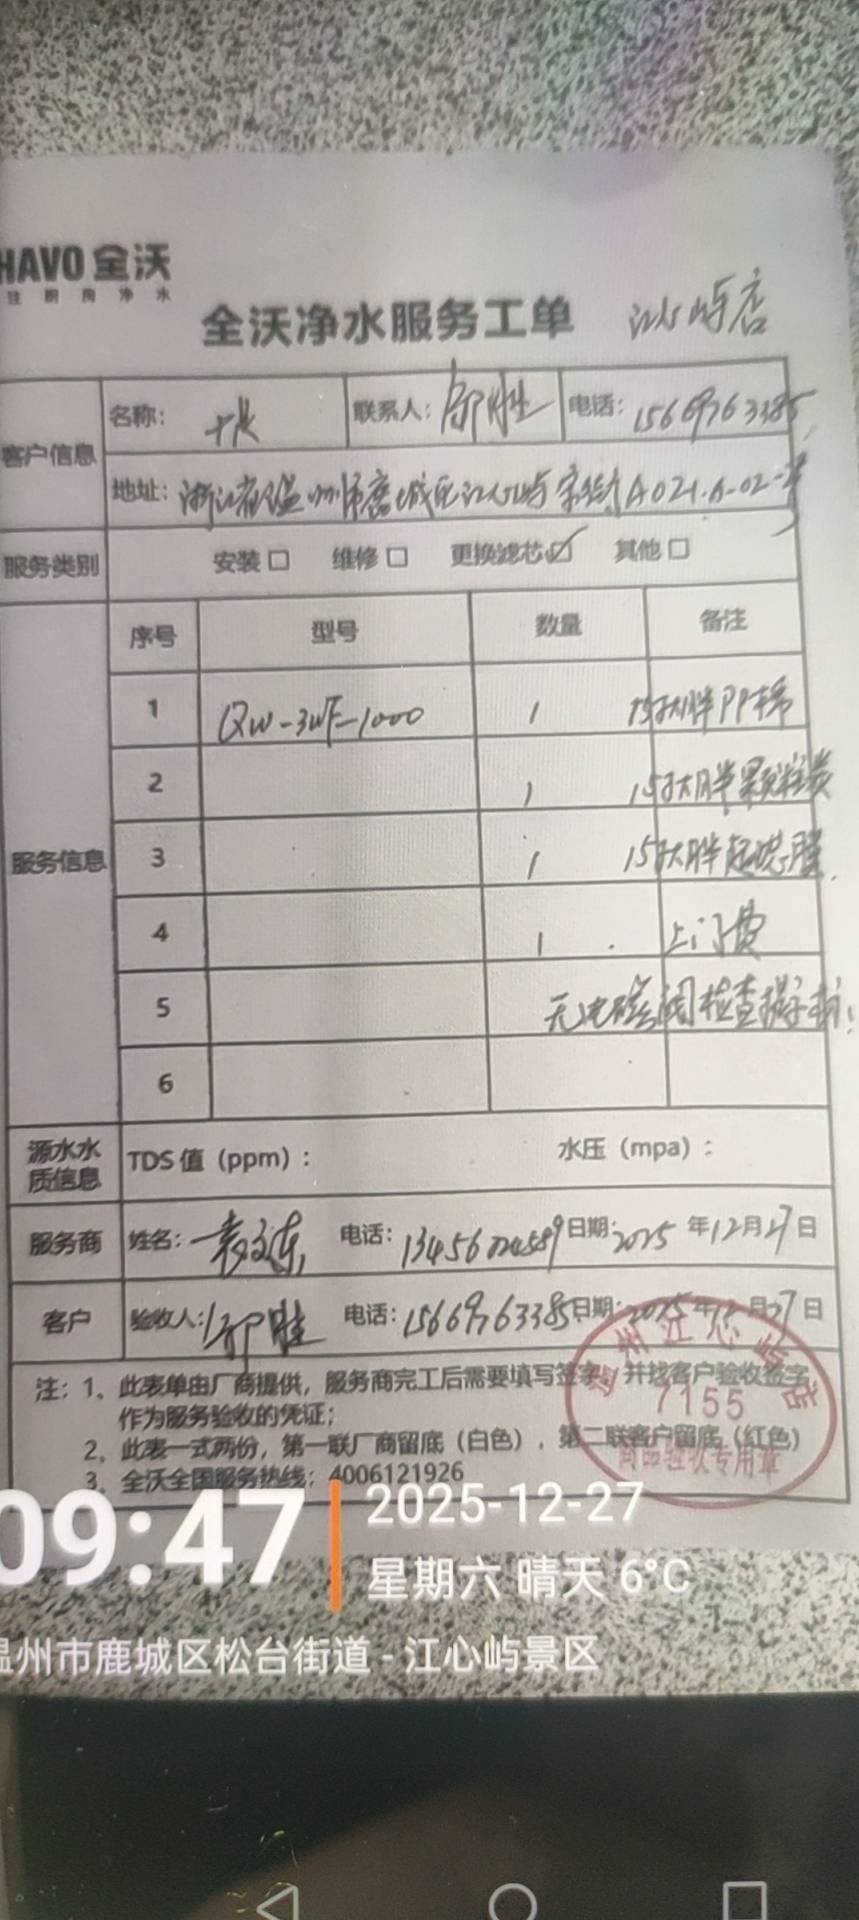 HAVO 全沃
全沃净水服务工单 江心屿店
客户信息 名称: 联系人: 电话: 15669763385
地址: 浙江省温州市鹿城区江心屿 A021.A-02-
服务类别 安装□ 维修□ 更换滤芯☑ 其他□
服务信息 序号 型号 数量 备注
1 QW-3WF-1000 1 15寸大胖PP棉
2 1 15寸大胖颗粒炭
3 1 15寸大胖超滤膜
4 1 上门费
5 无电磁阀检查
6
源水水质信息 TDS 值（ppm）: 水压（mpa）:
服务商 姓名: 电话: 日期: 2025 年 12 月 27 日
客户 验收人: 电话: 15669763385 日期: 2025 年 12 月 27 日
注: 1、此表单由厂商提供，服务商完工后需要填写签字，并找客户验收签字，
作为服务验收的凭证；
2、此表一式两份，第一联厂商留底（白色），第二联客户留底（红色）
3、全沃全国服务热线：4006121926
温州江心屿店
7155
商品验收专用章
09:47 2025-12-27
星期六 晴天 6°C
温州市鹿城区松台街道 - 江心屿景区